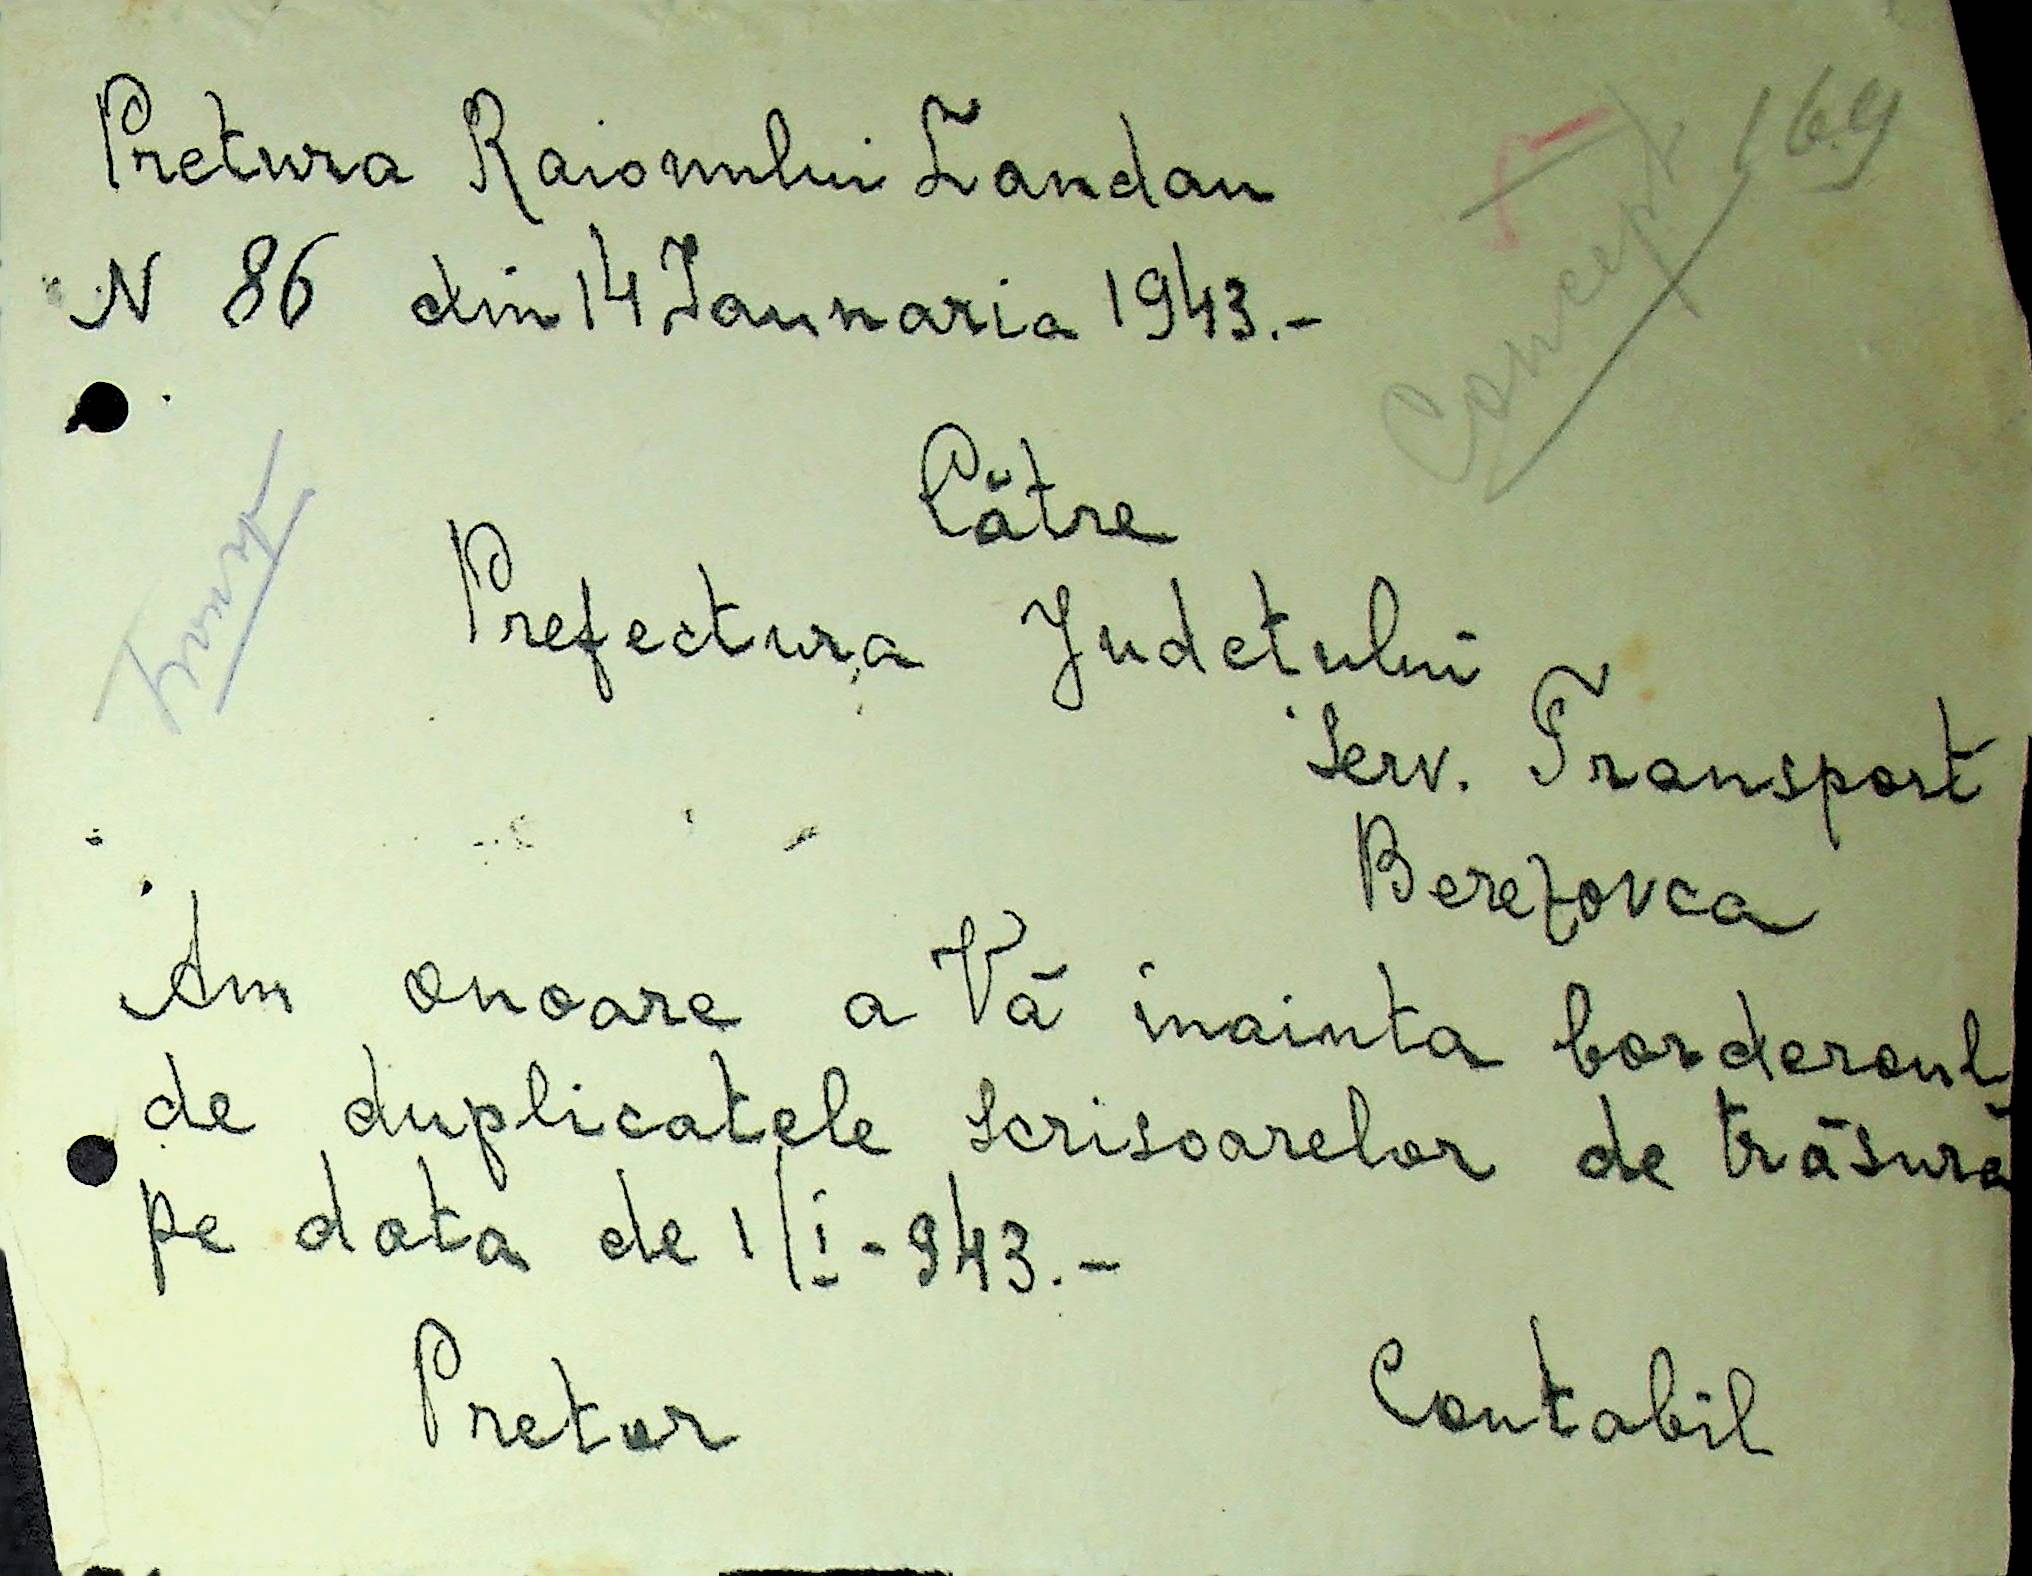 Pretura Raionului Landau
169
N 86 din 14 Iaunaria 1943.-
Concept
Către
Prefectura Judetului
Serv. Transport
Berezovca
Am onoare a Vă inainta borderoul
de duplicatele scrisoarelor de trăsură
pe data de 1/I-943.-
Pretor Contabil